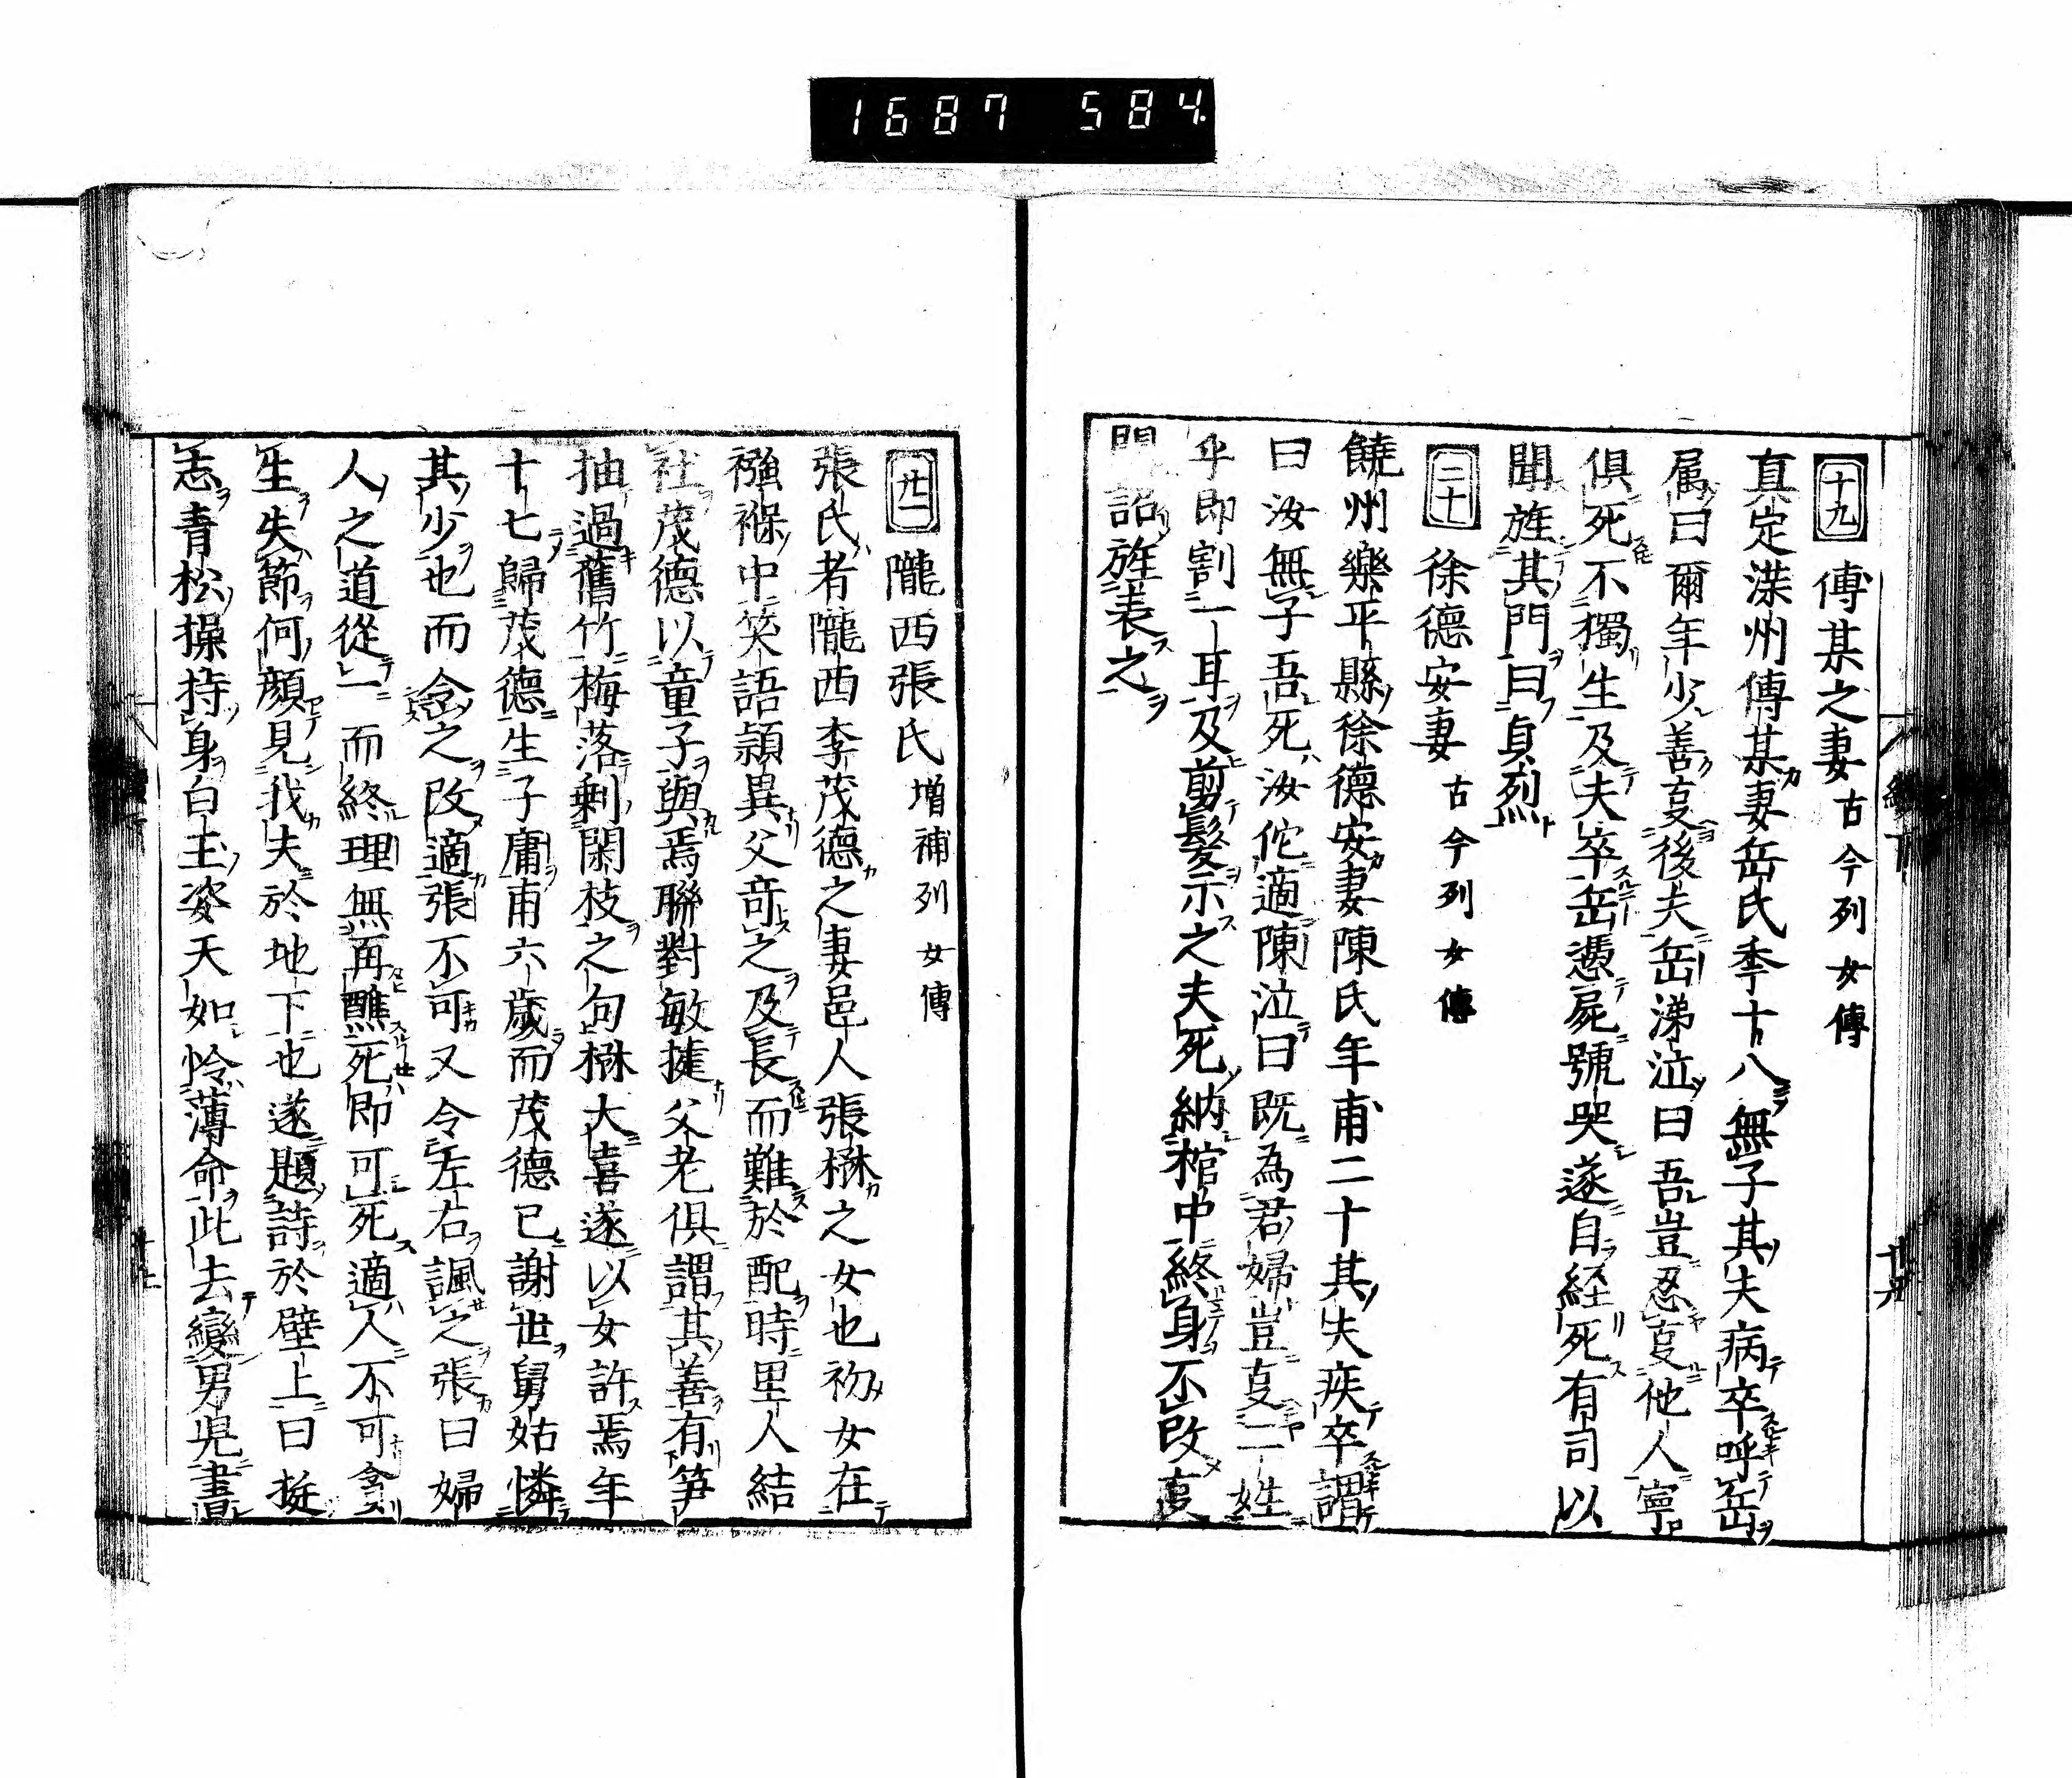 1687 584
十九 傅某之妻 古今列女傳
真定深州傅某妻岳氏季十八無子其夫病卒呼岳
属曰爾年少善㕝後夫岳涕泣曰吾豈忍㕝他人寧
俱死不獨生及夫卒岳憑屍號哭遂自経死有司以
聞旌其門曰貞烈
二十 徐德安妻 古今列女傳
饒州樂平縣徐德安妻陳氏年甫二十其夫疾卒謂
曰汝無子吾死汝佗適陳泣曰既為君婦豈㕝二姓
乎即割一耳及剪髮示之夫死納棺中終身不改㕝
聞詔旌表之
廿一 隴西張氏 増補列女傳
張氏者隴西李茂德之妻邑人張楙之女也初女在
襁褓中笑語頴異父竒之及長而難於配時里人結
社茂德以童子與焉聯對敏捷父老俱謂其善有笋
抽過舊竹梅落剰閑枝之句楙大喜遂以女許焉年
十七歸茂德生子庸甫六歳而茂德已謝世舅姑憐
其少也而念之改適張不可又令左右諷之張曰婦
人之道從一而終理無再醮死即可死適人不可貪
生失節何顔見我夫於地下也遂題詩於壁上曰挺
志青松操持身白玉姿天如怜薄命此去變男児書